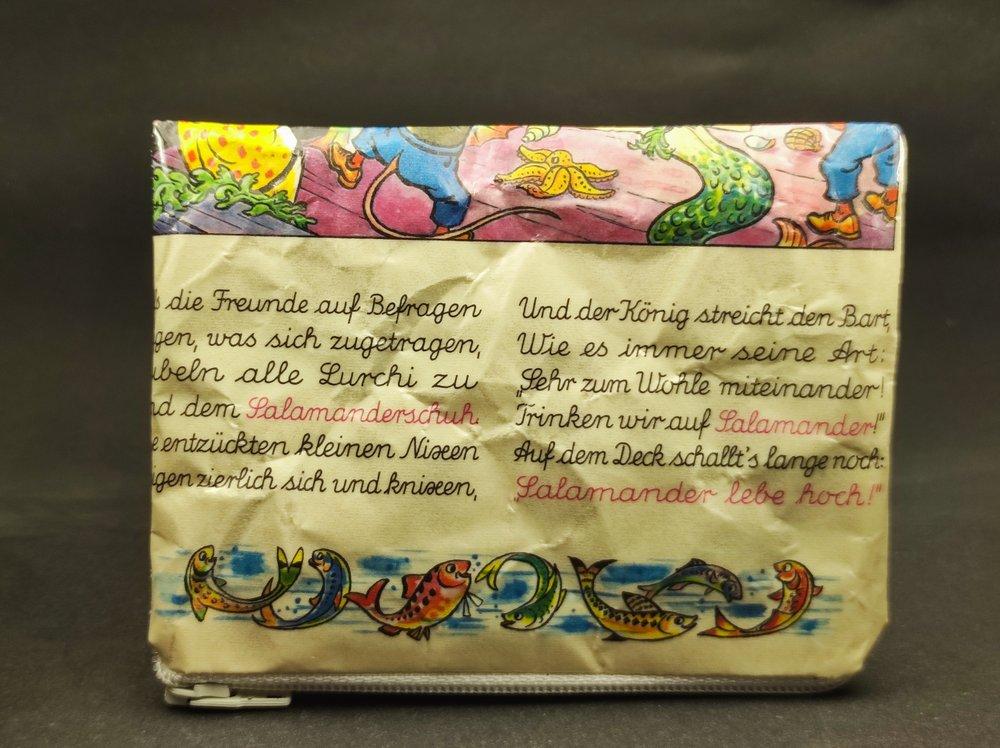 die Freunde auf Befragen
gen, was sich zugetragen,
ubeln alle Lurchi zu
nd dem Salamanderschuh.
e entzückten kleinen Nixen
igen zierlich sich und knixen,
Und der König streicht den Bart,
Wie es immer seine Art:
„Sehr zum Wohle miteinander!
Trinken wir auf Salamander!"
Auf dem Deck schallt's lange noch:
„Salamander lebe hoch!"